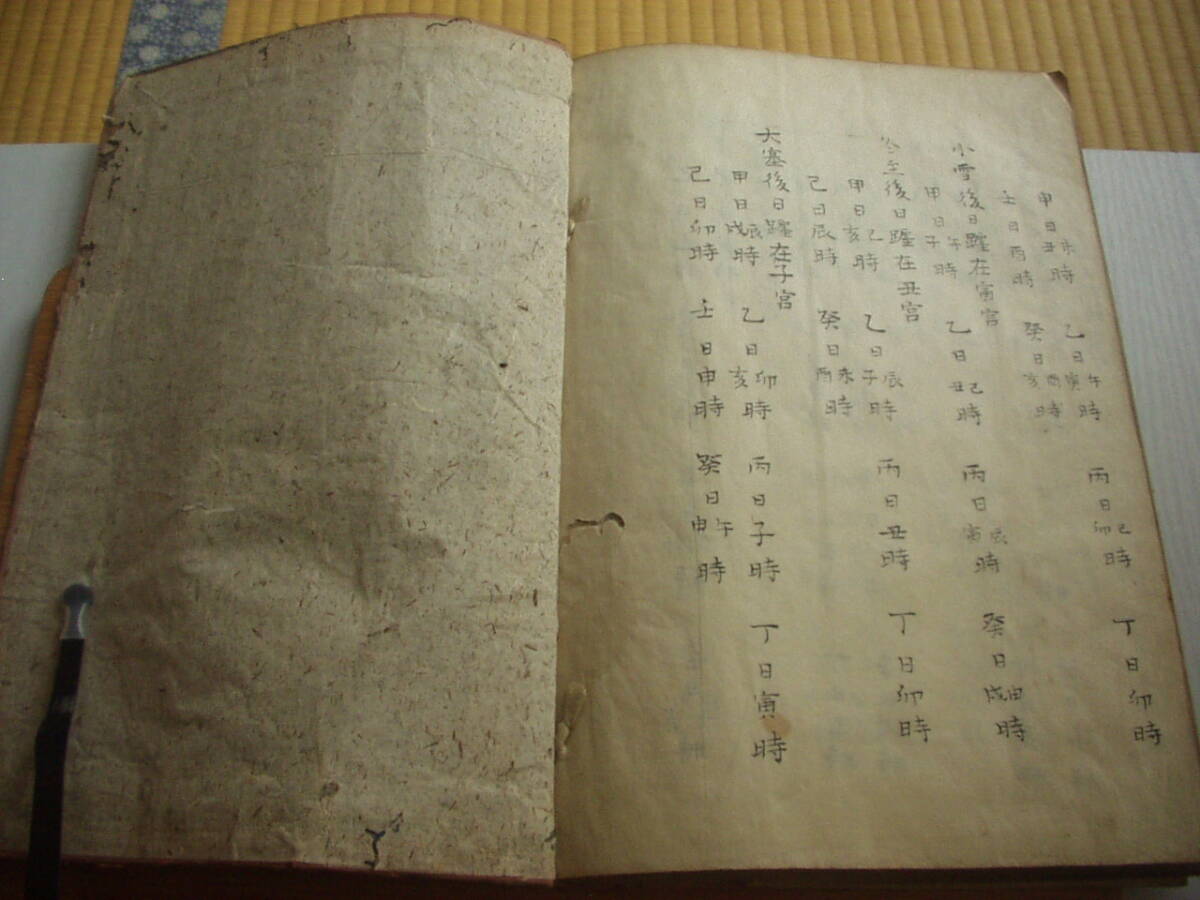 甲日未丑時 乙日午寅時 丙日巳卯時 丁日卯時
壬日酉時 癸日酉亥時
小雪後日躔在寅宮
甲日午子時 乙日巳丑時 丙日辰寅時 癸日申戌時
冬至後日躔在丑宮
甲日巳亥時 乙日辰子時 丙日丑時 丁日卯時
己日辰時 癸日未酉時
大寒後日躔在子宮
甲日辰戌時 乙日卯亥時 丙日子時 丁日寅時
己日卯時 壬日申時 癸日午申時